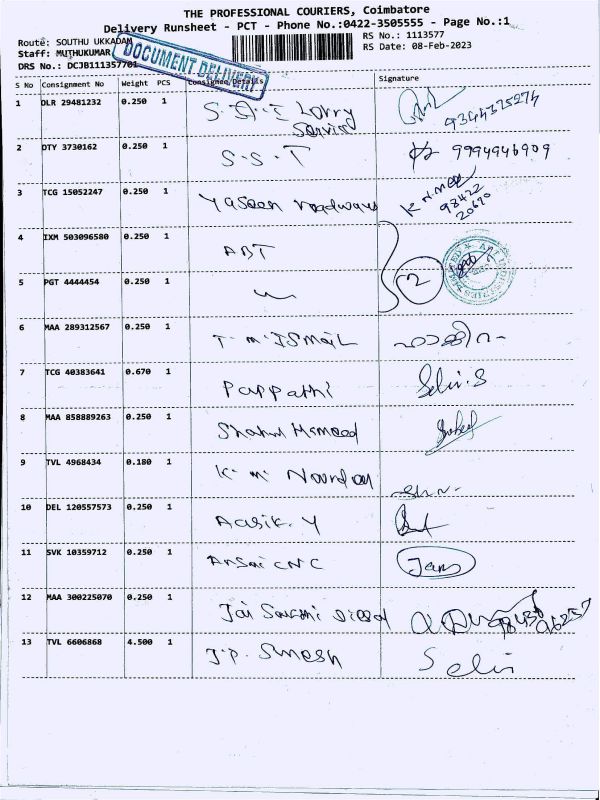 THE PROFESSIONAL COURIERS, Coimbatore
Delivery Runsheet - PCT - Phone No.:0422-3505555 - Page No.:1
Route: SOUTHU UKKADAM
RS No.: 1113577
Staff: MUTHUKUMAR
RS Date: 08-Feb-2023
DRS No.: DCJB111357701
DOCUMENT DELIVERY
S No Consignment No Weight PCS Consignee Details Signature
1 DLR 29481232 0.250 1 S.A.I Lorry
Service
9344375274
2 DTY 3730162 0.250 1 S.S.T 9994946909
3 TCG 15052247 0.250 1 Yaseen roadways
98422
20670
4 IXM 503096580 0.250 1 ABT
5 PGT 4444454 0.250 1 2
6 MAA 289312567 0.250 1 T.M.ISMAIL
7 TCG 40383641 0.670 1 Pappathi Selvi.S
8 MAA 858889263 0.250 1 Shahul Hameed
9 TVL 4968434 0.180 1 K.M.
10 DEL 120557573 0.250 1 Aasik.Y
11 SVK 10359712 0.250 1 Ansai CNC
12 MAA 300225070 0.250 1 Jai Diesel
13 TVL 6606868 4.500 1 J.P. Suresh Selvi